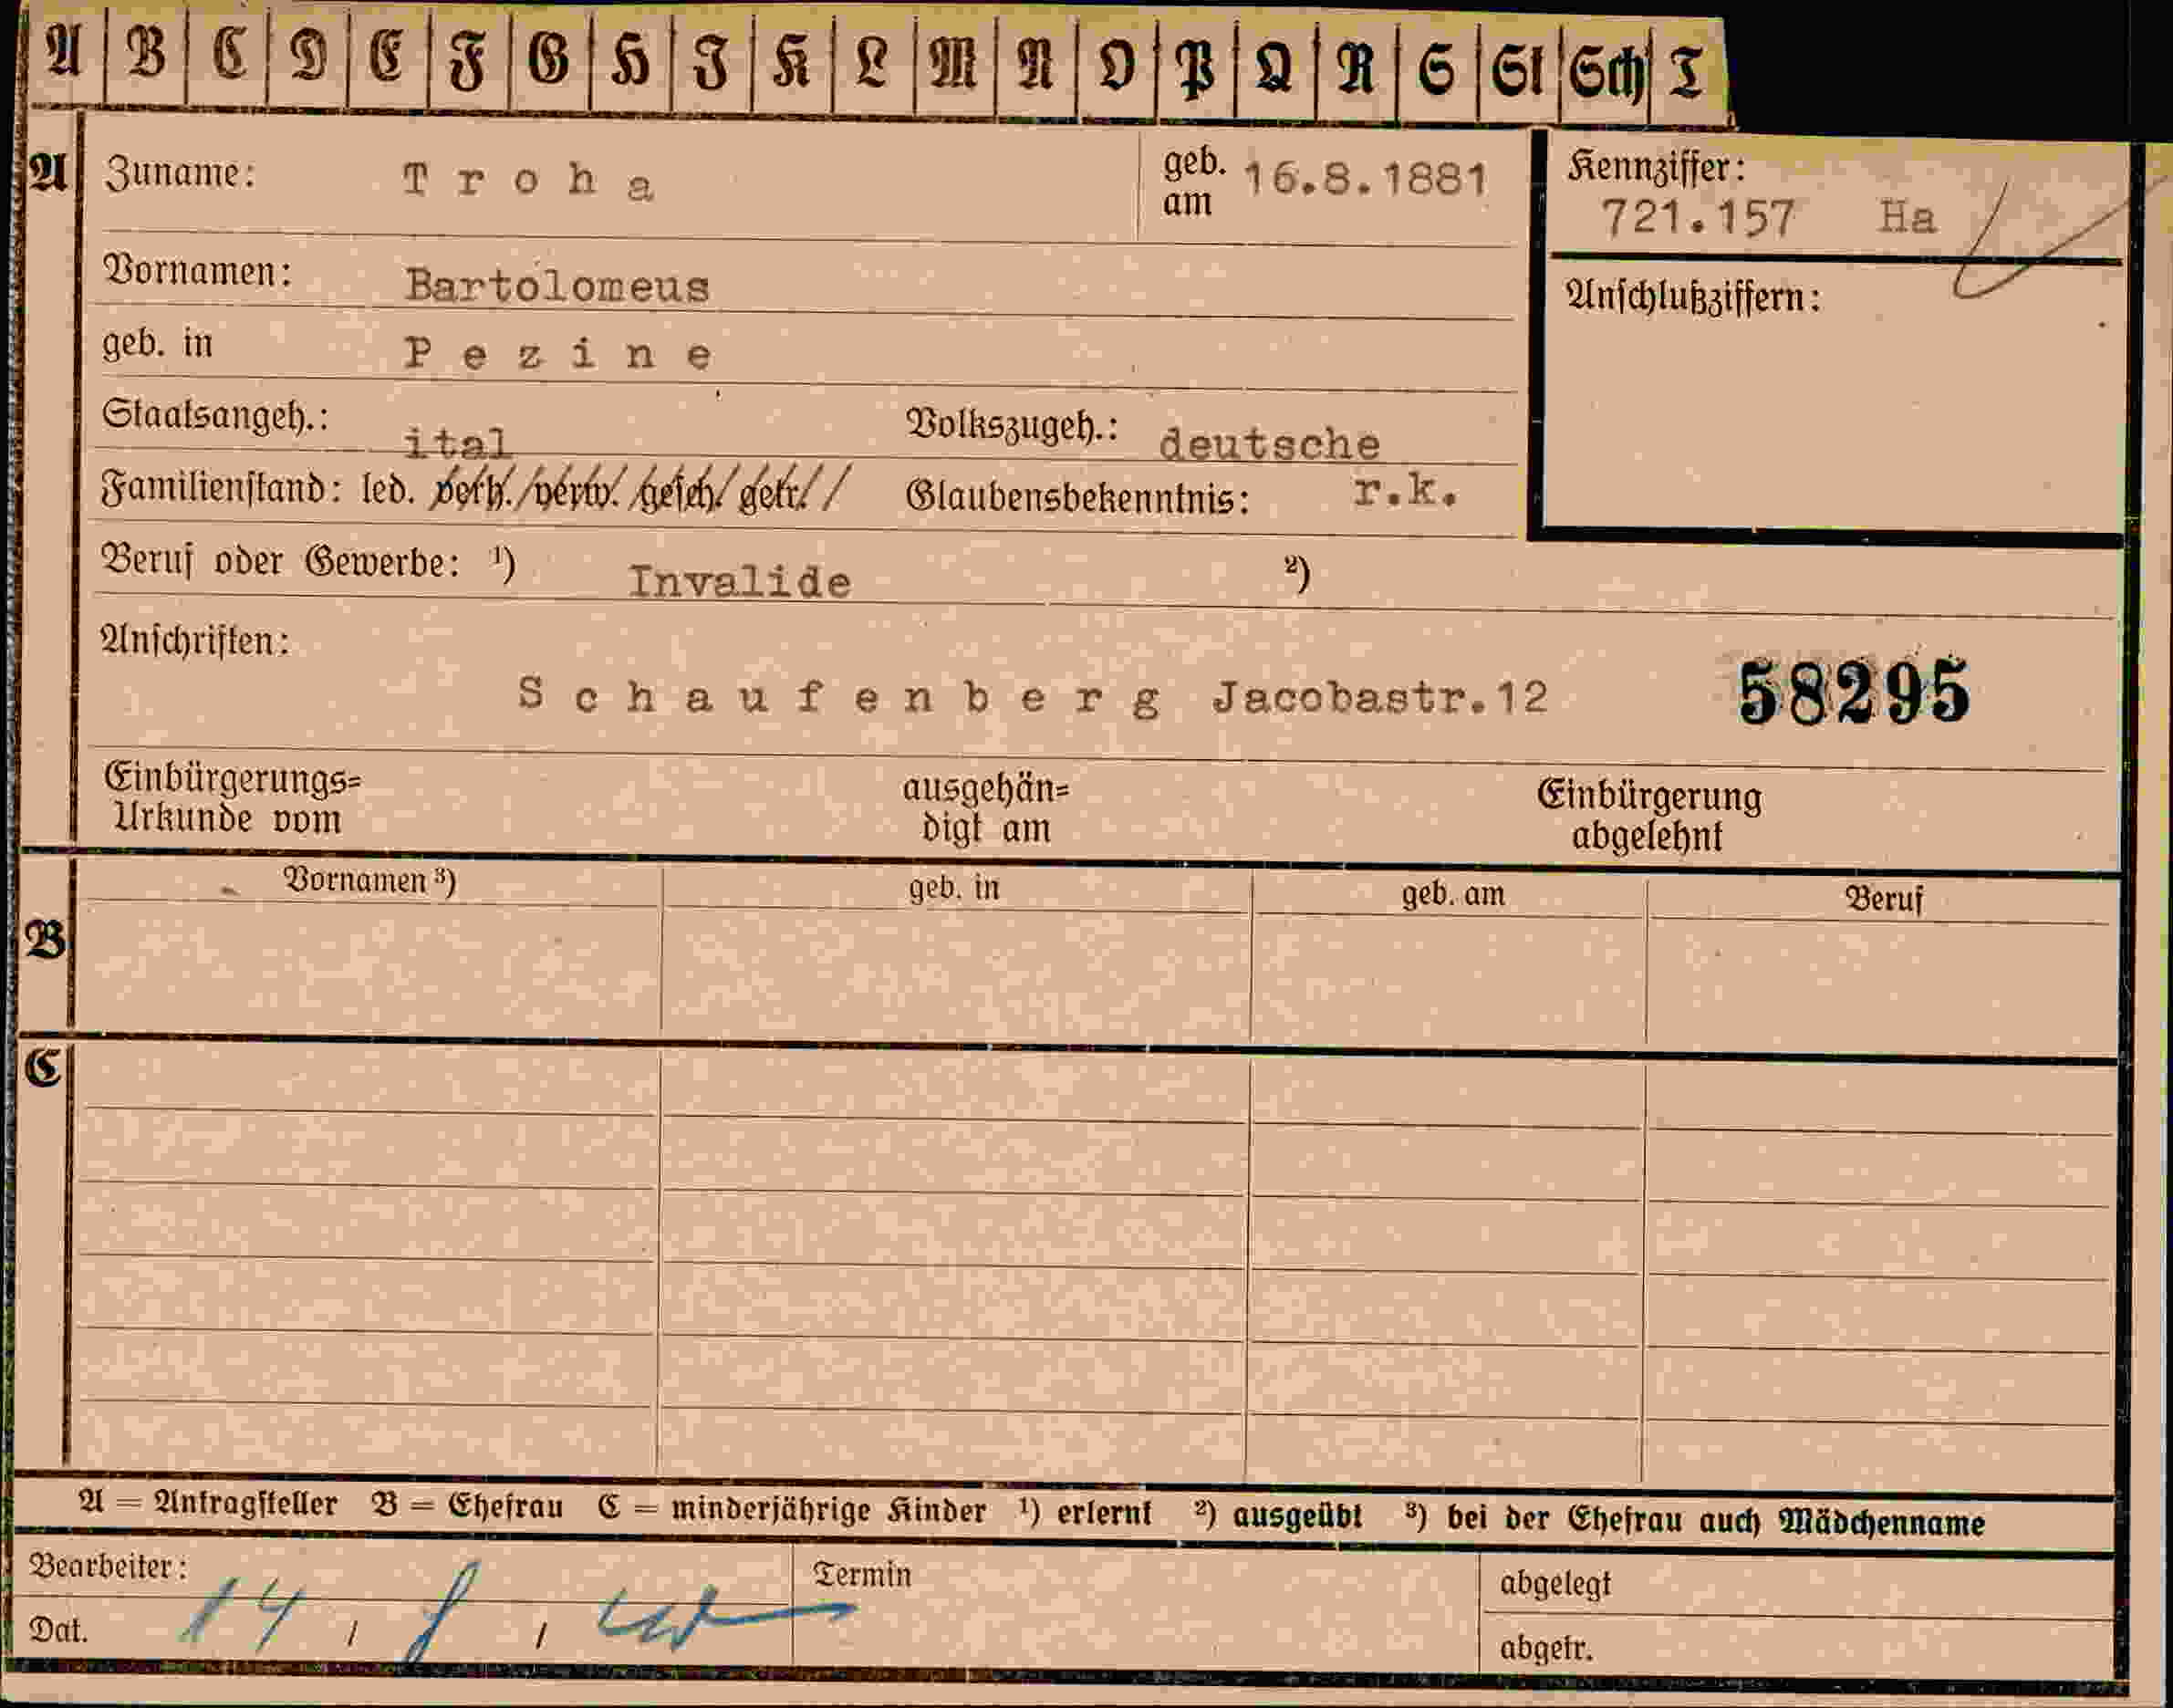 A B C D E F G H I K L M N O P Q R S St Sch T
A Zuname: Troha geb. am 16.8.1881 Kennziffer:
721.157 Ha
Vornamen: Bartolomeus Anschlußziffern:
geb. in Pezine
Staatsangeh.: ital Volkszugeh.: deutsche
Familienstand: led. verh./verw./gesch/getr./ Glaubensbekenntnis: r.k.
Beruf oder Gewerbe: ¹) Invalide ²)
Anschriften:
Schaufenberg Jacobastr.12 58295
Einbürgerungs= ausgehän= Einbürgerung
Urkunde vom digt am abgelehnt
Vornamen ³) geb. in geb. am Beruf
B
C
A = Antragsteller B = Ehefrau C = minderjährige Kinder ¹) erlernt ²) ausgeübt ³) bei der Ehefrau auch Mädchenname
Bearbeiter: Termin abgelegt
Dat. 14 / / abgetr.